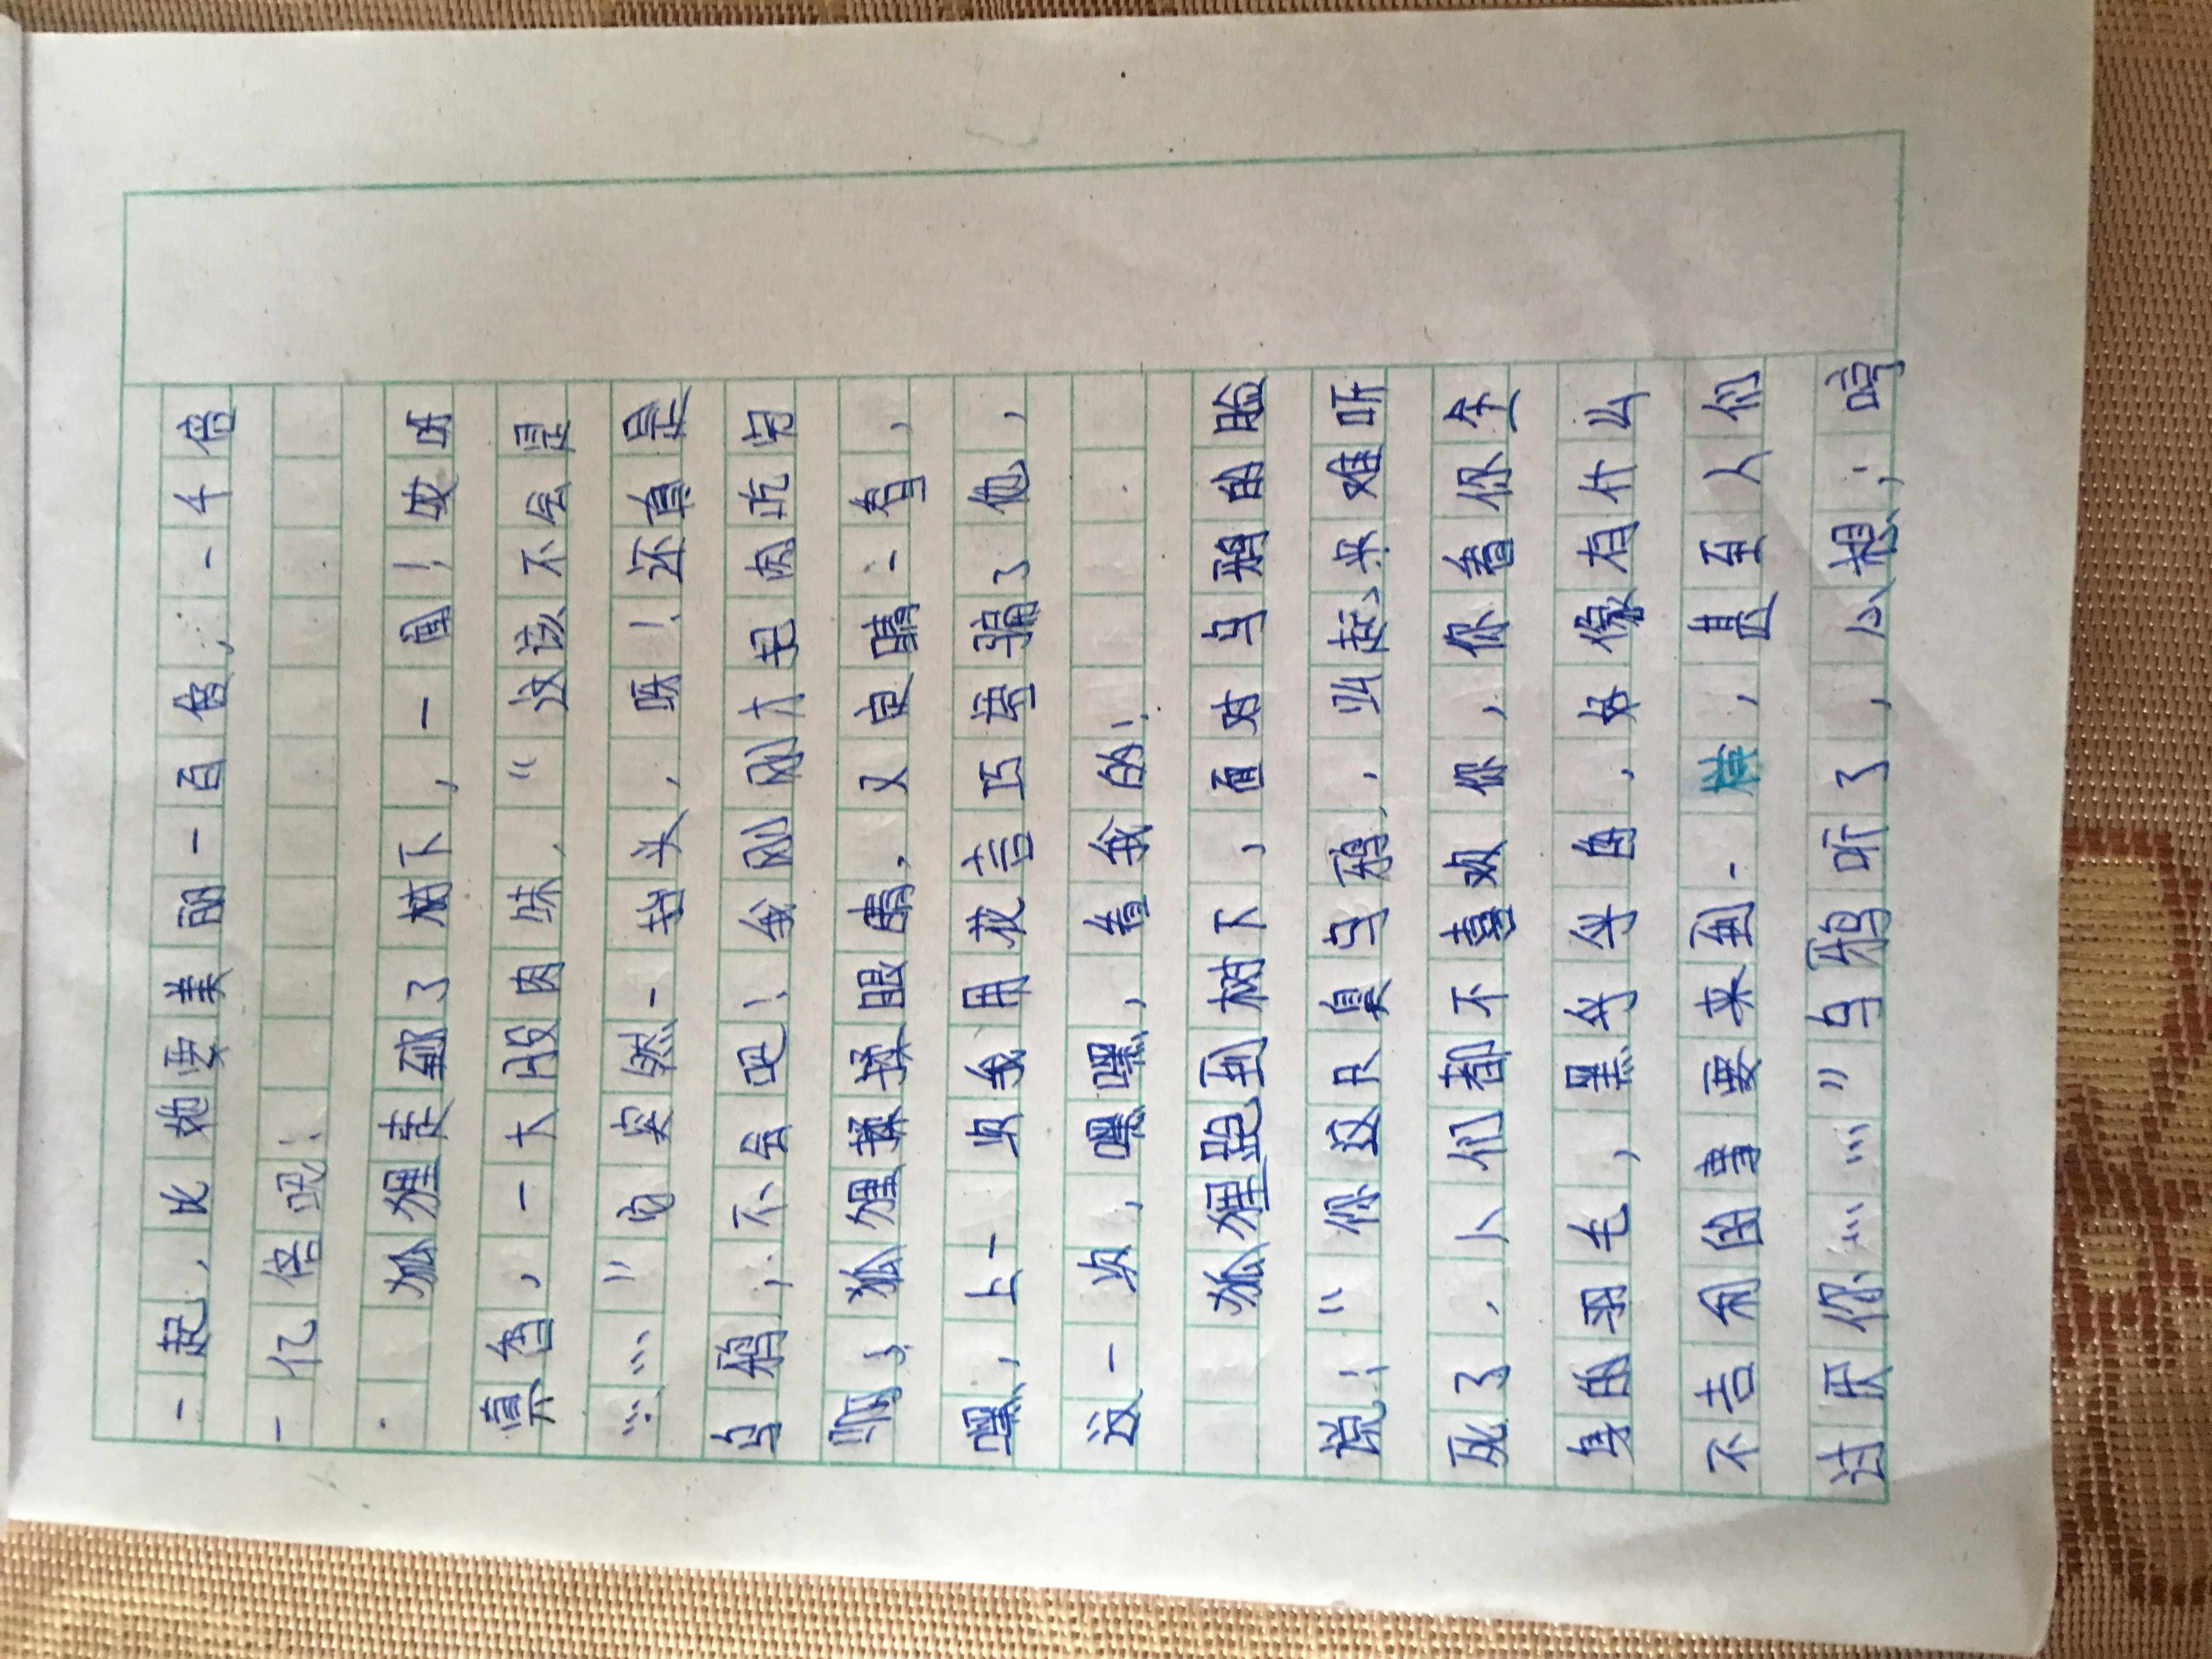 一起，比她要美丽一百倍，一千倍
一亿倍呢！
狐狸走到了树下，一闻！哎呀
真香，一大股肉味，“这该不会是
……”他突然一抬头，呀！还真是
乌鸦，不会吧！我刚刚才把肉吃完
啊！狐狸揉揉眼睛，又定睛一看，
嘿，上一次我用花言巧语骗了他，
这一次，嘿嘿，看我的！
狐狸跑到树下，面对乌鸦的脸
说：“你这只臭乌鸦，叫起来难听
死了，人们都不喜欢你，你看你全
身的羽毛，黑乎乎的，好像有什么
不吉利的事要来到一样，甚至人们
讨厌你……”乌鸦听了，心想：哼